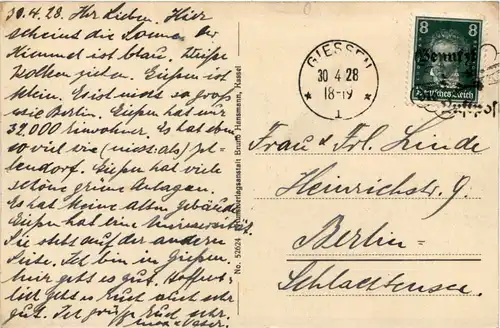 30.4.28. Ihr Lieben. Hier
scheint die Sonne. Der
Himmel ist blau. Weiße
Wolken ziehen. Gießen ist
schön. Es ist nicht so groß
wie Berlin. Gießen hat nur
32,000 Einwohner. Es hat eben
so viel wie (nicht: als)
Gießen hat viele
schöne grüne Anlagen.
Es hat keine alten Gebäude.
Gießen hat eine Universität.
Sie steht auf der anderen
Seite. Ich bin in Gießen.
Mir geht es gut. Hoffent-
lich geht es Euch auch sehr
gut. Ich grüße Euch sehr.
Vater.
No. 52624 Kunstverlagsanstalt Bruno Hansmann, Kassel
GIESSEN
30 4 28
18-19
* 1 *
8
Deutsches Reich
Benutzt
Frau & Frl. Linde
Heinrichstr. 9
Berlin=
Schlachtensee.